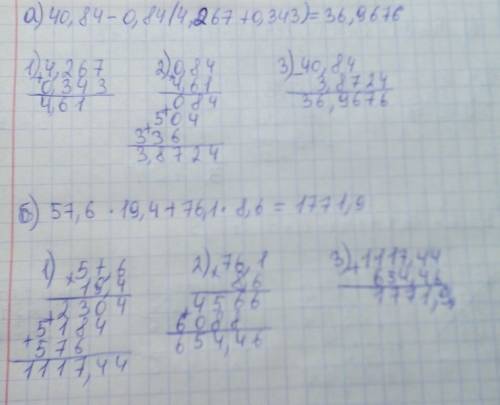 а) 40,84 - 0,84(4,267 + 0,343) = 36,9676
1) 4,267
+ 0,343
4,61
2) 0,84
4,61
084
+ 504
+ 336
3,8724
3) - 40,84
3,8724
36,9676
б) 57,6 · 19,4 + 76,1 · 8,6 = 1771,9
1) × 57,6
19,4
+ 2304
+ 5184
+ 576
1117,44
2) × 76,1
8,6
4566
+ 6088
654,46
3) + 1117,44
654,46
1771,9